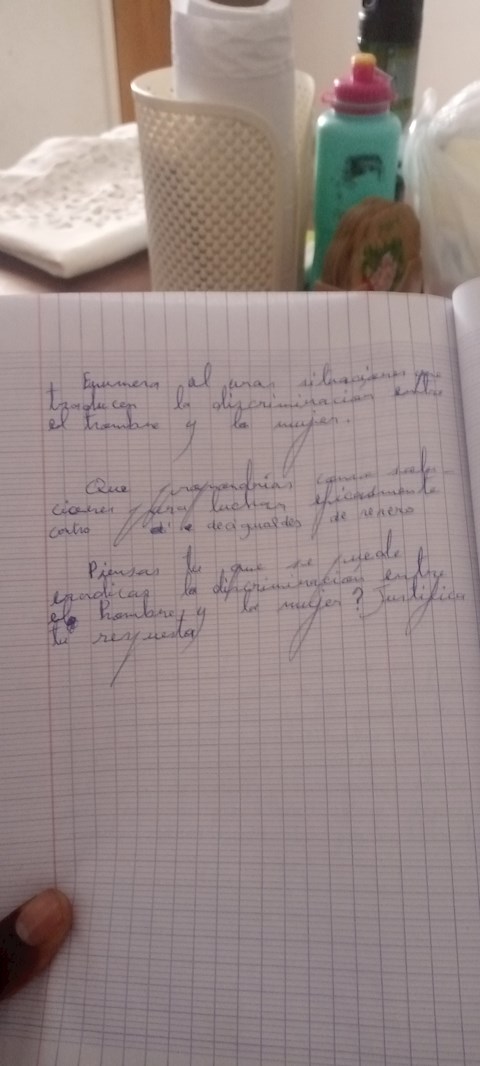 Enumera al unas situaciones que
traducen la discriminacion entre
el hombre y la mujer.
Que propondrias como solu-
ciones para luchar eficazmente
contra desigualdes de genero
Piensas tu que se puede
erradicar la discriminacion entre
el hombre y la mujer ? Justifica
tu respuesta